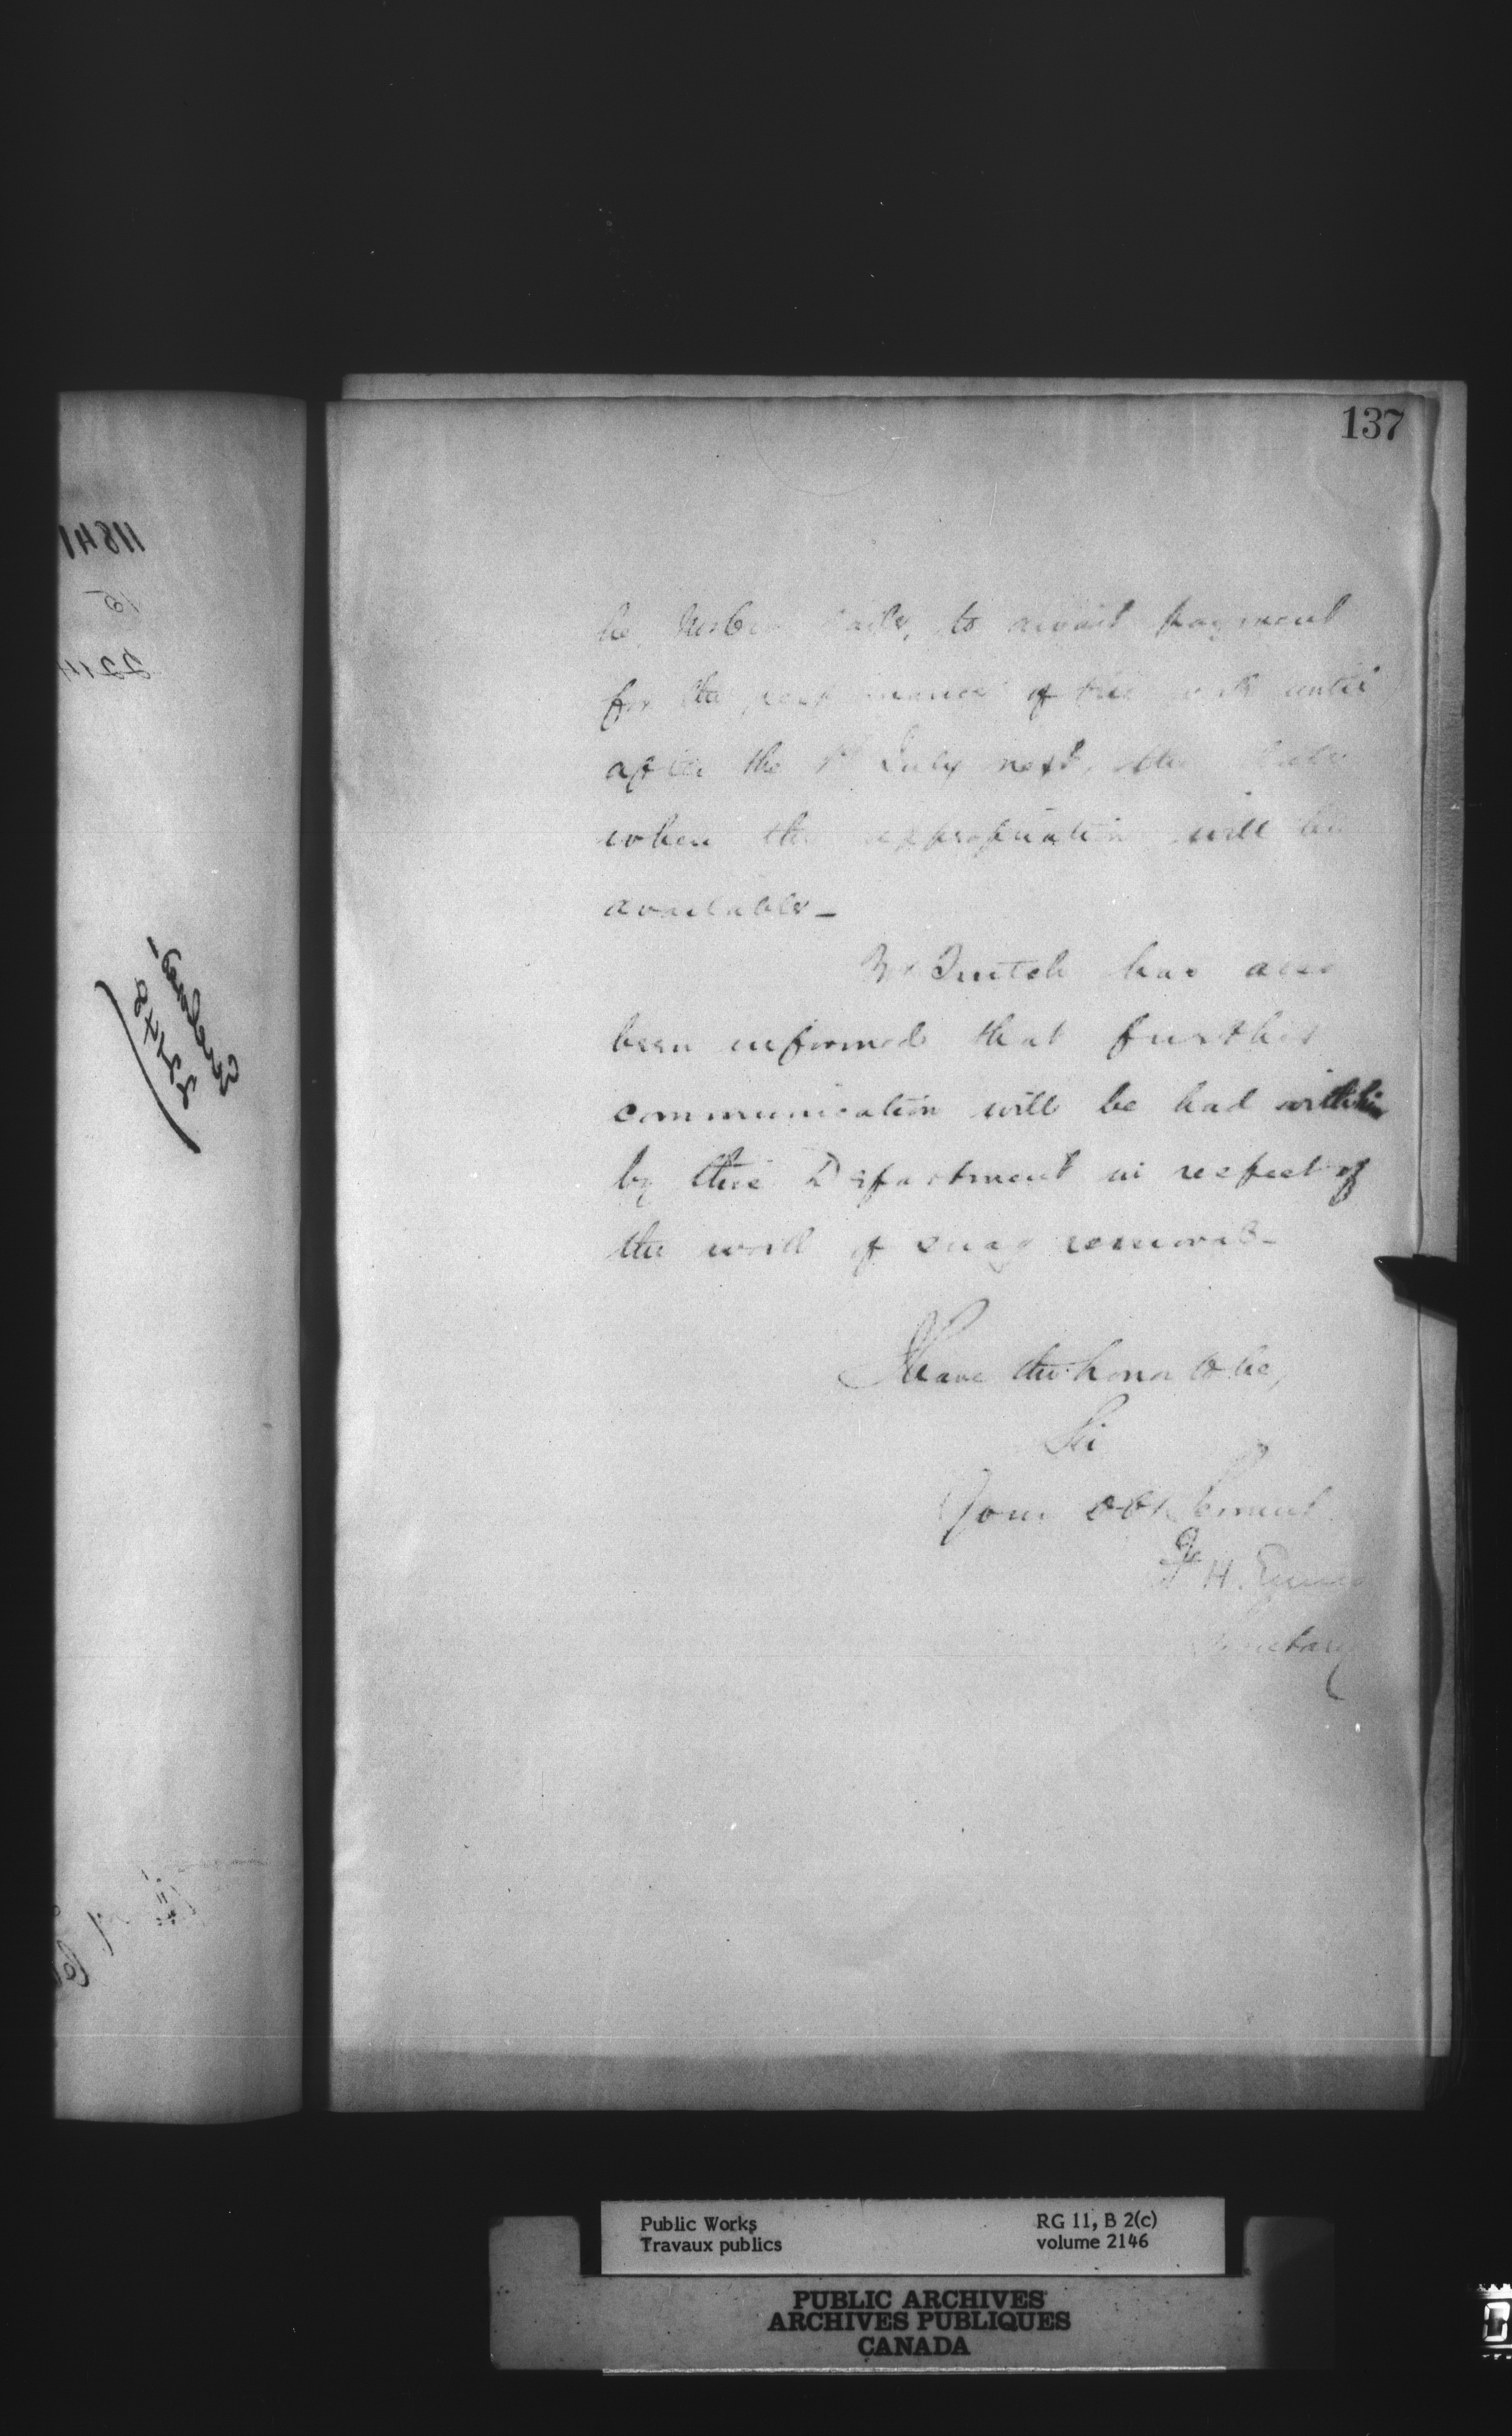 137
to await payment
for the performance of this work until
after the 1st July next, the date
when the appropriation will be
available_
Mr. Trutch has also
been informed that further
communication will be had with him
by this Department in respect of
the work of snag removal_
I have the honor to be,
Sir
Your obt. Servant
F. H. Ennis
Secretary
11841
2211
Public Works
Travaux publics
RG 11, B 2(c)
volume 2146
PUBLIC ARCHIVES
ARCHIVES PUBLIQUES
CANADA